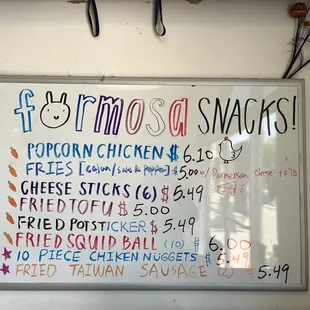 formosa SNACKS!
POPCORN CHICKEN $ 6.10
FRIES [Cajun/Salt & Pepper] $ 5.00 w/ Parmersan Cheese +0.75
CHEESE STICKS (6) $ 5.49
FRIED TOFU $ 5.00
FRIED POTSTICKER $ 5.49
FRIED SQUID BALL (10) $ 6.00
10 PIECE CHIKEN NUGGETS $ 5.49
FRIED TAIWAN SAUSAGE (2) $ 5.49